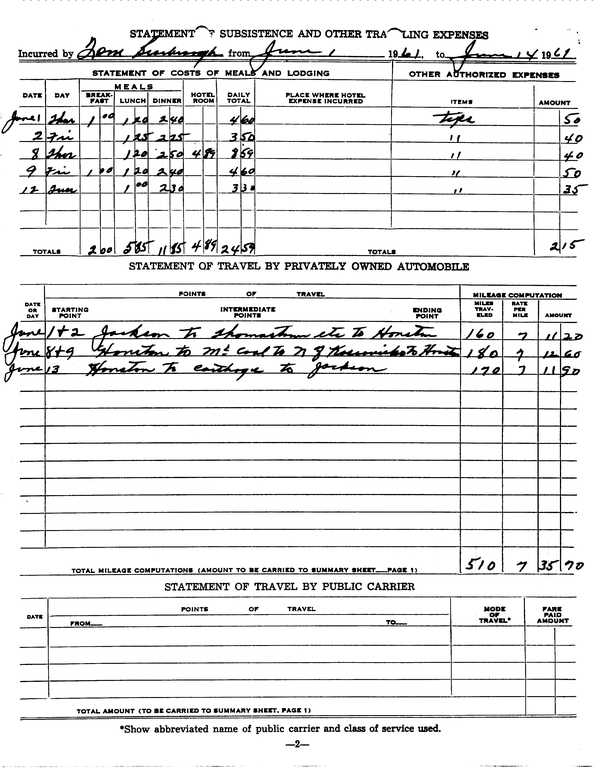 STATEMENT OF SUBSISTENCE AND OTHER TRAVELING EXPENSES
Incurred by Tom Scarbrough from June 1 1961, to June 14 1961
STATEMENT OF COSTS OF MEALS AND LODGING OTHER AUTHORIZED EXPENSES
DATE DAY MEALS BREAKFAST LUNCH DINNER HOTEL ROOM DAILY TOTAL PLACE WHERE HOTEL EXPENSE INCURRED ITEMS AMOUNT
June 1 Thur 1 00 1 20 2 40 4 60 tips 50
2 Fri 1 25 2 25 3 50 " 40
8 Thur 1 20 2 50 4 89 8 59 " 40
9 Fri 1 00 1 20 2 40 4 60 " 50
12 1 00 2 30 3 30 " 35
TOTALS 2 00 5 85 11 85 4 89 24 59 TOTALS 2 15
STATEMENT OF TRAVEL BY PRIVATELY OWNED AUTOMOBILE
DATE OR DAY POINTS OF TRAVEL STARTING POINT INTERMEDIATE POINTS ENDING POINT MILEAGE COMPUTATION MILES TRAVELED RATE PER MILE AMOUNT
June 1 & 2 Jackson to Thomastown etc to Houston 160 7 11 20
June 8 & 9 Houston to McCool to Kosciusko to Houston 180 7 12 60
June 13 Houston to Carthage to Jackson 170 7 11 90
TOTAL MILEAGE COMPUTATIONS (AMOUNT TO BE CARRIED TO SUMMARY SHEET—PAGE 1) 510 7 35 70
STATEMENT OF TRAVEL BY PUBLIC CARRIER
DATE POINTS OF TRAVEL FROM— TO— MODE OF TRAVEL* FARE PAID AMOUNT
TOTAL AMOUNT (TO BE CARRIED TO SUMMARY SHEET, PAGE 1)
*Show abbreviated name of public carrier and class of service used.
—2—